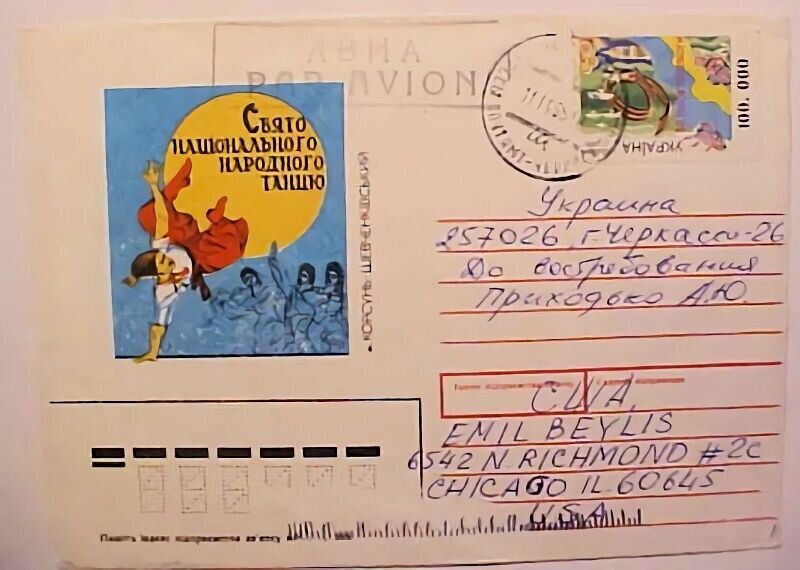 АВИА
PAR AVION
100.000
УКРАЇНА
Свято
національного
народного
танцю
• КОРСУНЬ-ШЕВЧЕНКІВСЬКИЙ
Украина
257026, г. Черкассы-26
До востребования
Приходько А.Ю.
США,
EMIL BEYLIS
6542 N. RICHMOND #2C
CHICAGO IL. 60645
U.S.A